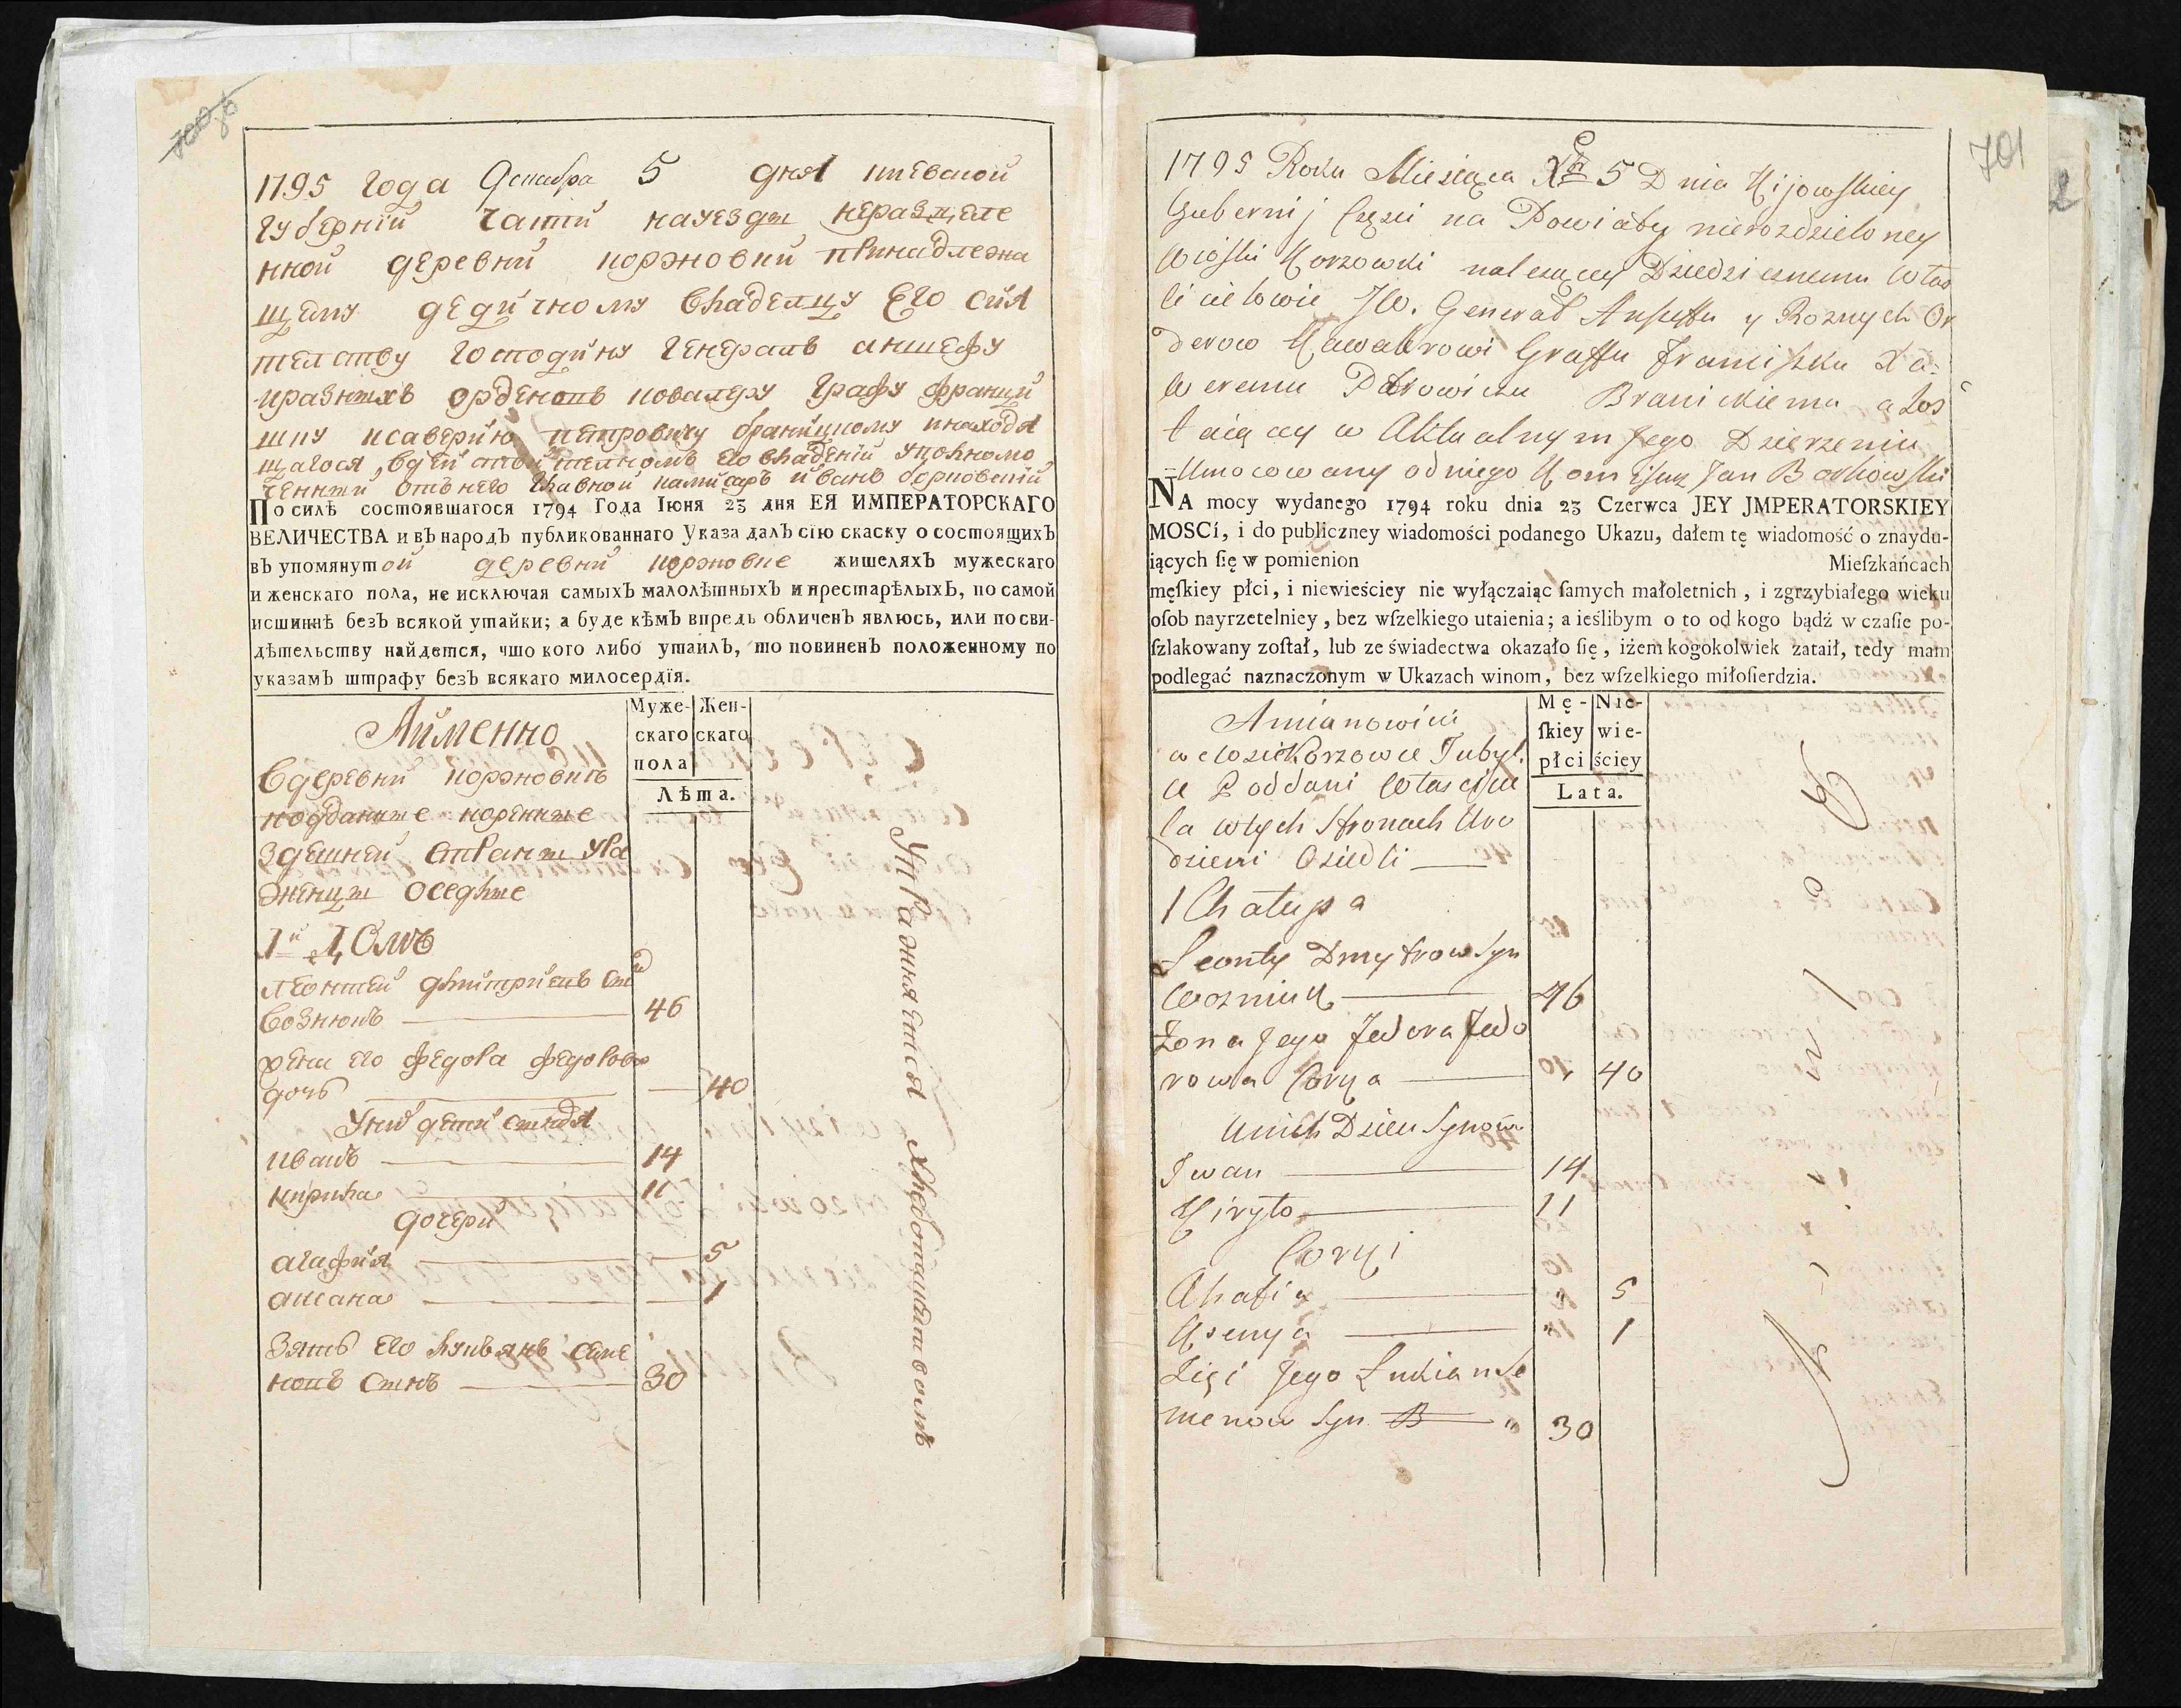 1795 года Декабря 5 дня киевской
губернїи части науезды неразделе
нной деревни коржовки принадлежа
щему дедичному владелцу Его Сия
телству господину генералъ аншефу
иразныхъ орденовъ ковалеру графу Францы
шку ксаверию петровичу браницкому инаходя
щагося, вдействителномъ его владении уполномо
ченный отънего главной камисаръ иванъ
По силѣ состоявшагося 1794 Года Іюня 23 дня ЕЯ ИМПЕРАТОРСКАГО
ВЕЛИЧЕСТВА и въ народъ публикованнаго Указа далъ сію скаску о состоящихъ
въ упомянутой деревни коржовке жителяхъ мужескаго
и женскаго пола, не исключая самыхъ малолѣтныхъ и престарѣлыхъ, по самой
истиннѣ безъ всякой утайки; а буде кѣмъ впредь обличенъ явлюсь, или по сви-
дѣтельству найдется, что кого либо утаилъ, то повиненъ положенному по
указамъ штрафу безъ всякаго милосердїя.
Аименно
Муже-
скаго
пола
Жен-
скаго
Лѣта.
вдеревни коржовке
подданые коренные
здешней страны уро
женцы оседлые
1й Домъ
леонтей дмитриевъ сын
вознюкъ 46
жена его федора федорова
дочь 40
уних дети сыновя
иванъ 14
кирила 11
дочери
агафия 5
аксана 1
зять его лукьянъ семе
новъ сынъ 30
Упражняется хлебопашествомъ
701
2
1795 Roku Miesiąca Xbr 5 Dnia Kijowskiey
Gubernij Części na Powiaty nierozdzieloney
Wioski Korzowki należącey Dziedzicznemu Włas
cicielowie JW. Generał Anszeffu y Roznych Or
derow Kawalerowi Graffu Franciszku Xa=
weremu Petrowiczu Branickiemu a zos
taiącey w Aktualnym Jego Dzierzeniu
Umocowany odniego Komisarz Jan
NA mocy wydanego 1794 roku dnia 23 Czerwca JEY JMPERATORSKIEY
MOSCí, i do publiczney wiadomości podanego Ukazu, dałem tę wiadomość o znaydu-
iących się w pomienion Mieſzkańcach
męſkiey płci, i niewieściey nie wyłączaiąc ſamych małoletnich, i zgrzybiałego wieku
oſob nayrzetelniey, bez wſzelkiego utaienia; a ieślibym o to od kogo bądź w czaſie po-
ſzlakowany zoſtał, lub ze świadectwa okazało ſię, iżem kogokolwiek zataił, tedy mam
podlegać naznaczonym w Ukazach winom, bez wſzelkiego miłoſierdzia.
Amianowici
Mę-
ſkiey
płci
Nie-
wie-
ściey
Lata.
w Wsie Korzowce Tubyl
ce Poddani Właścicie
la wtych Stronach Uro
dzieni Osiedli
1 Chałupa
Leonty Dmytrow Syn
Wozniuk 46
Zona Jego Fedora Fedo
rowa Corka " 40
Unich Dzieci Synowie
Iwan 14
Kiryło 11
Corki
Ahafia " 5
Xsenya " 1
Zięć Jego Łukian Se
menow Syn " 30